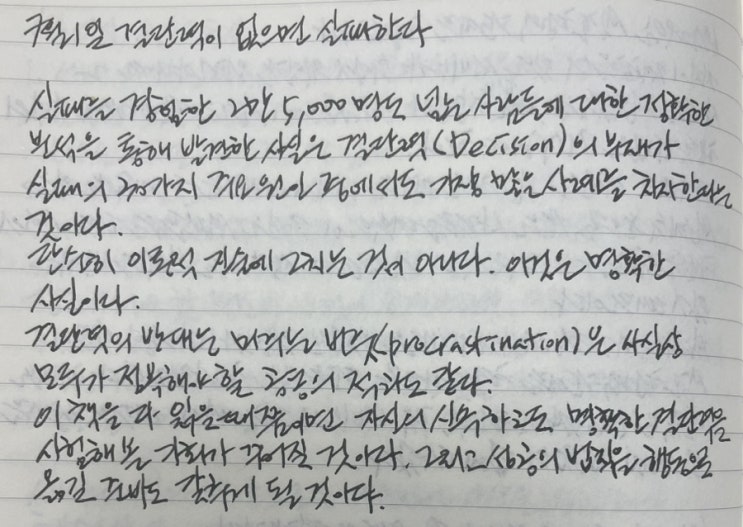 결단력이 없으면 실패한다
실패를 경험한 2만 5,000명도 넘는 사람들에 대한 정확한
분석을 통해 발견한 사실은 결단력(Decision)의 부재가
실패의 30가지 주요 원인 중에서도 가장 많은 사례를 차지한다는
것이다.
단순히 이론적 진술에 그치는 것이 아니다. 이것은 명확한
사실이다.
결단력의 반대는 미루는 버릇(procrastination)은 사실상
모두가 정복해야 할 공통의 적과도 같다.
이 책을 다 읽을 때쯤이면 자신의 신속하고도 명확한 결단력을
시험해 볼 기회가 주어질 것이다. 그리고 성공의 법칙을 행동으로
옮길 준비도 갖추게 될 것이다.